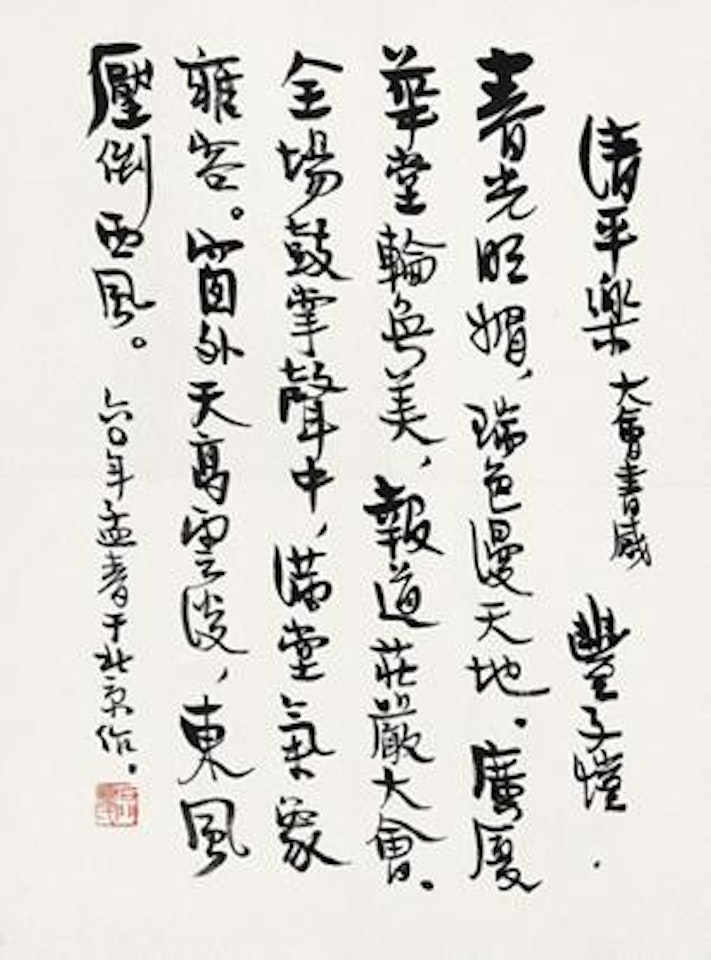 清平樂 大會書感 豐子愷
春光明媚，瑞色漫天地。廣廈
華堂輪奐美，報道莊嚴大會。
全場鼓掌聲中，滿堂氣象
雍容。窗外天高雲淡，東風
壓倒西風。 六〇年孟春于北京作。